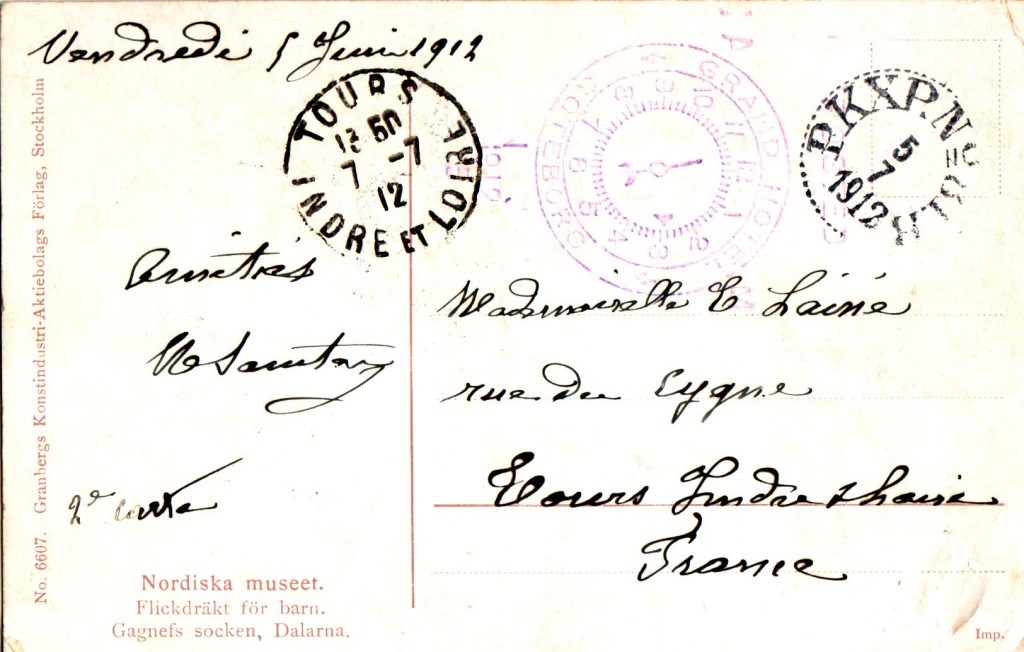 Vendredi 5 Juin 1912
TOURS
13 50
7 -7
12
INDRE ET LOIRE
GRAND HOTEL
GÖTEBORG
PKXP. No
5
7
1912
Amitiés
2e carte
Mademoiselle E Lainé
rue du Cygne
Tours Indre & Loire
France
Nordiska museet.
Flickdräkt för barn.
Gagnefs socken, Dalarna.
No. 6607. Granbergs Konstindustri-Aktiebolags Förlag, Stockholm
Imp.